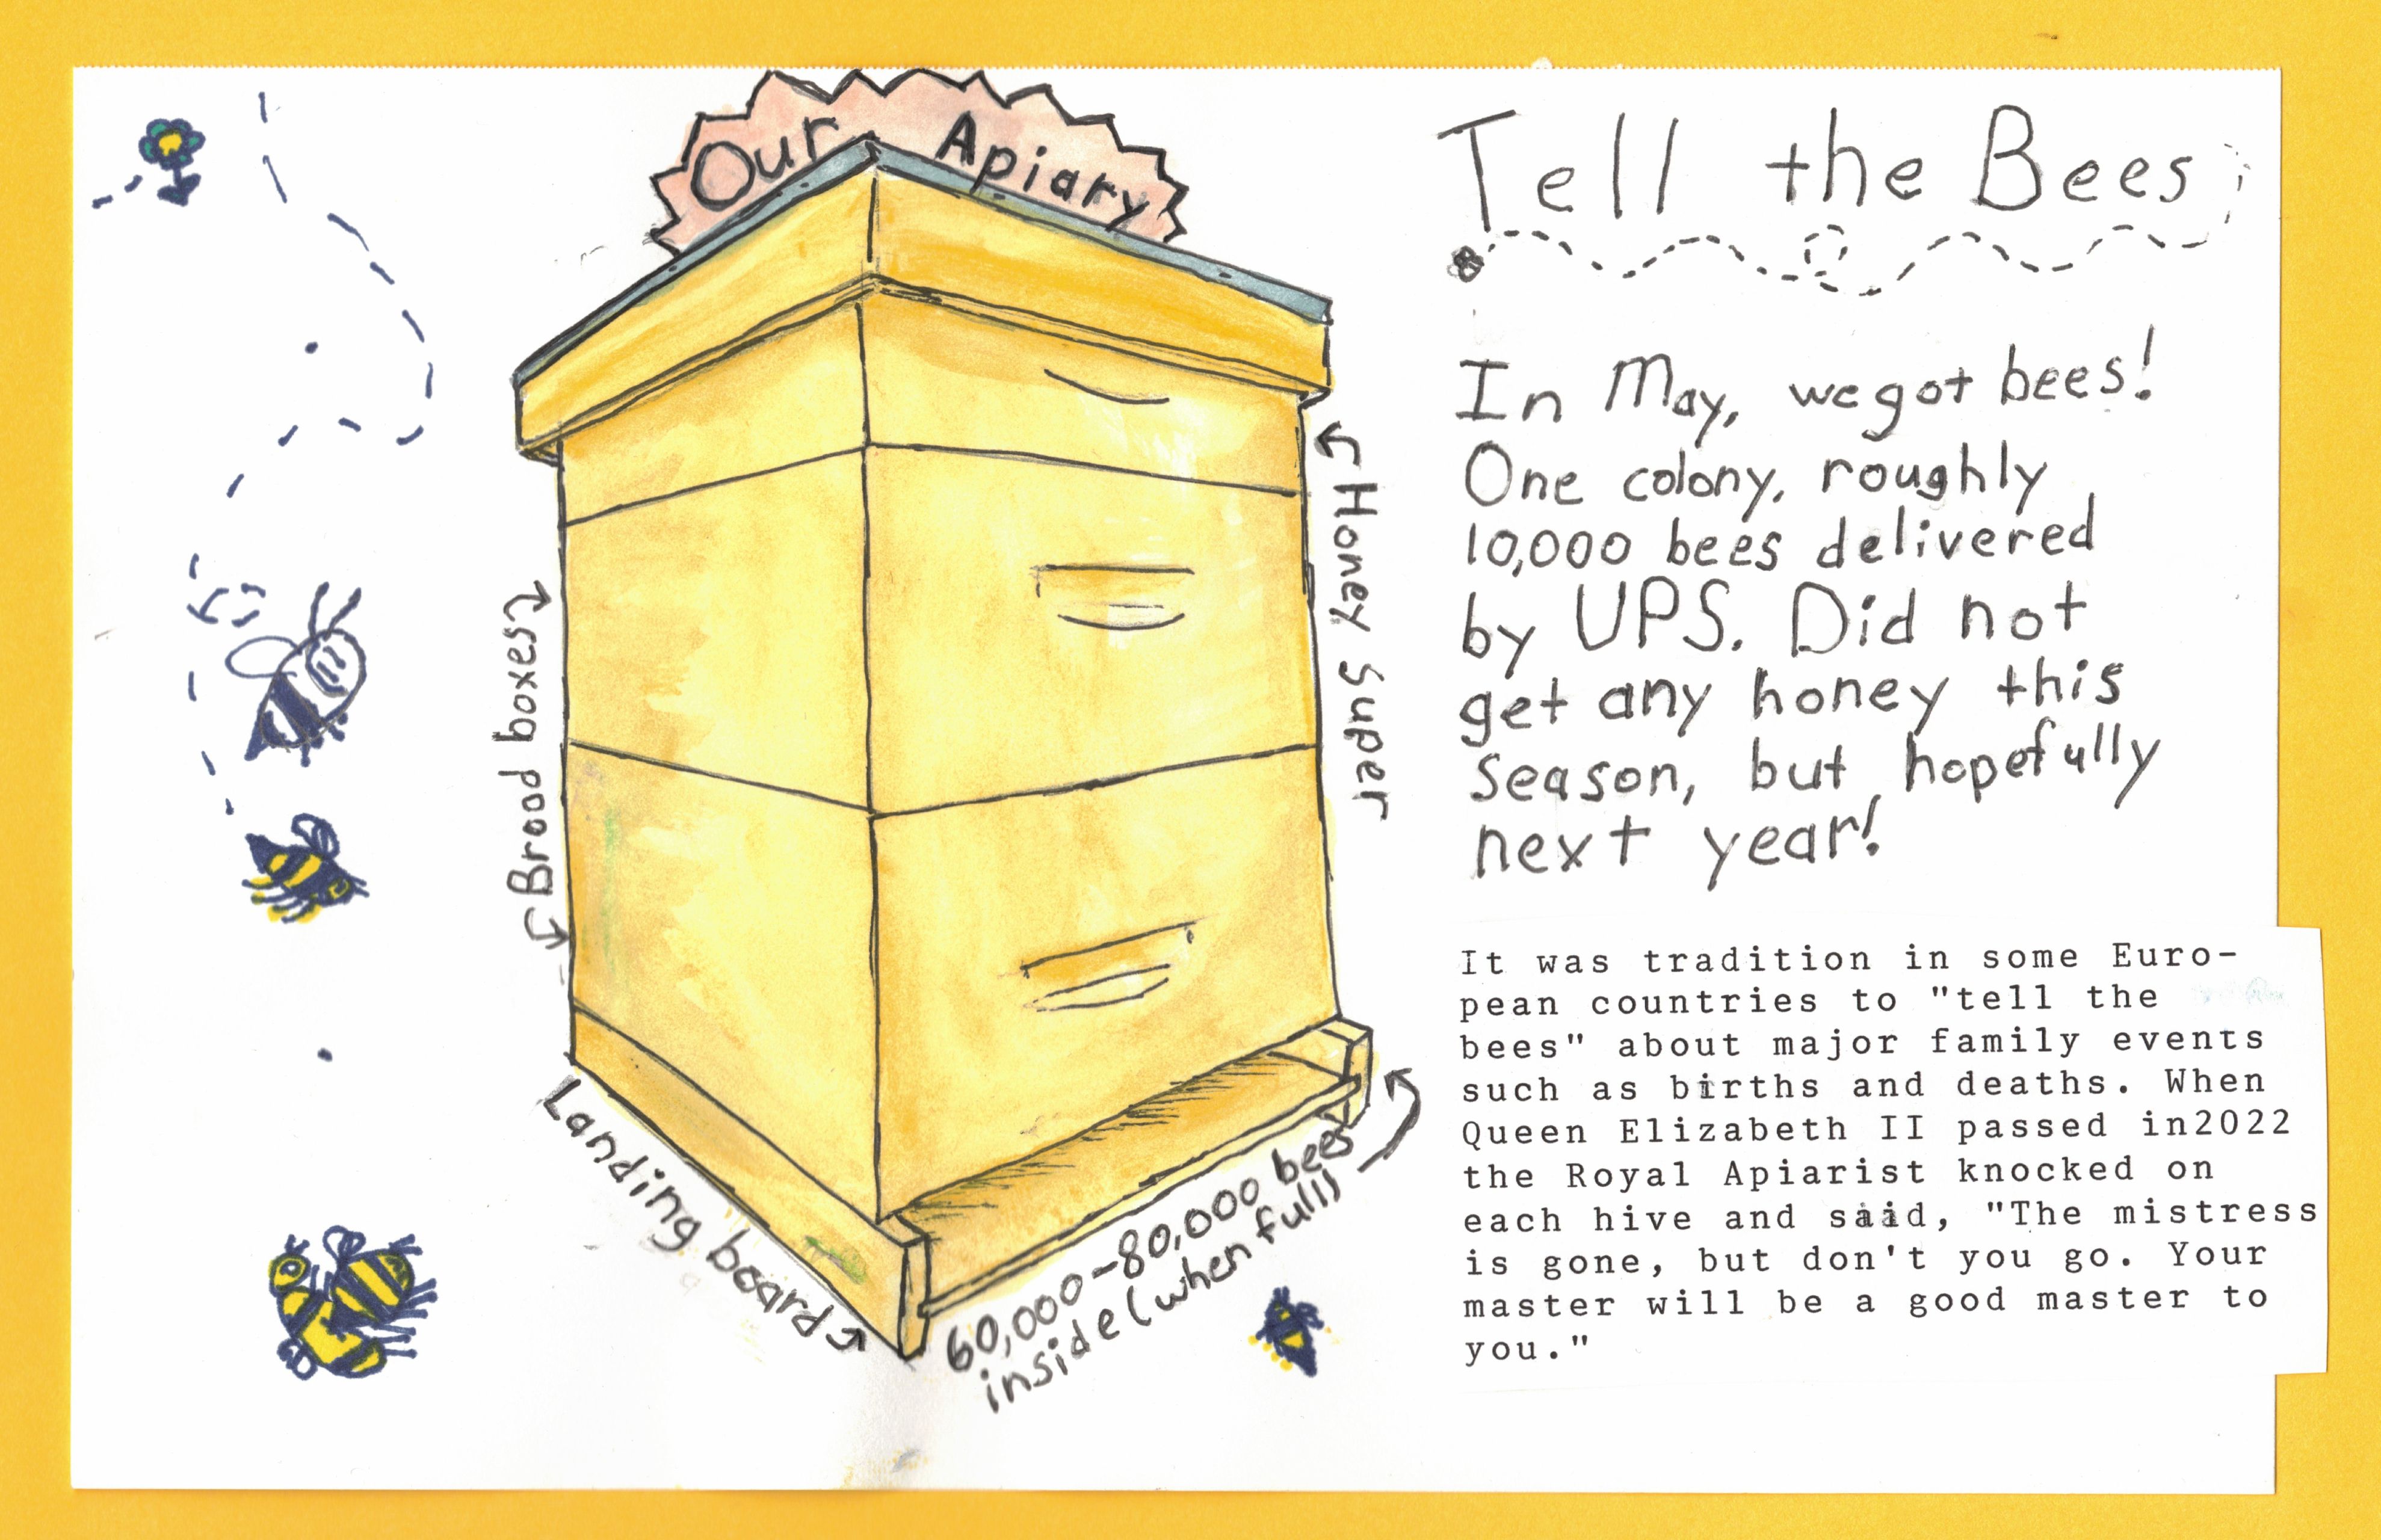 Our Apiary
Honey Super
Brood boxes
Landing board
60,000-80,000 bees
inside (when full)
Tell the Bees
In May, we got bees!
One colony, roughly
10,000 bees delivered
by UPS. Did not
get any honey this
season, but hopefully
next year!
It was tradition in some Euro-
pean countries to "tell the
bees" about major family events
such as births and deaths. When
Queen Elizabeth II passed in2022
the Royal Apiarist knocked on
each hive and said, "The mistress
is gone, but don't you go. Your
master will be a good master to
you."